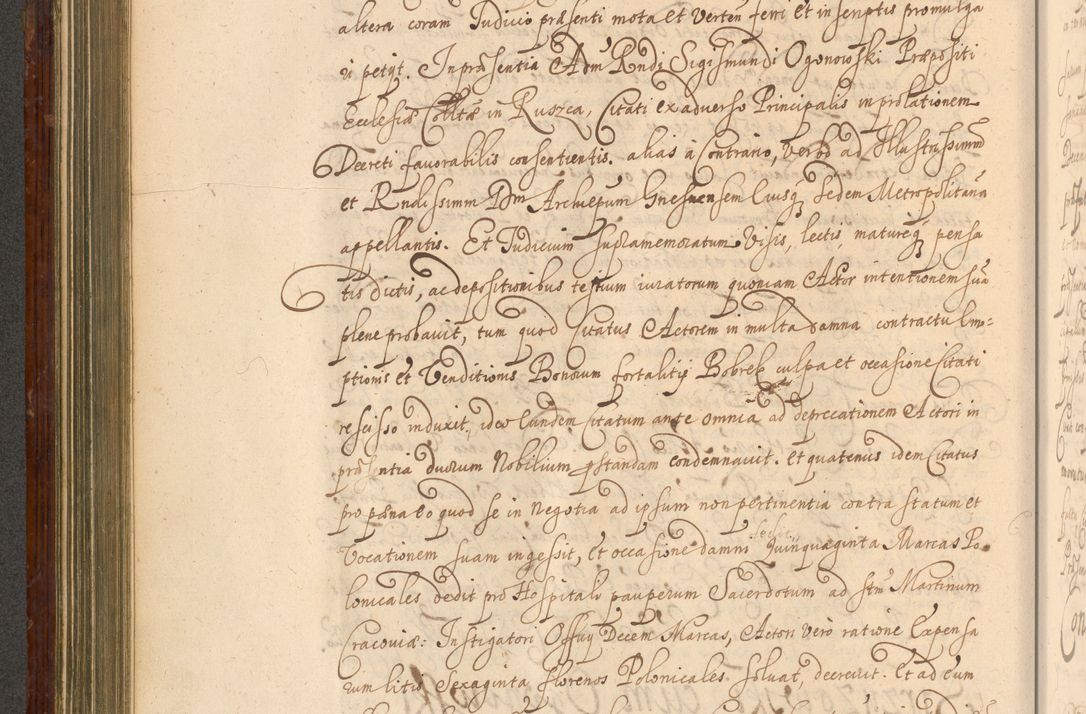 altera coram Judicio præsenti mota et verten ferri et in scriptis promulga
ri petijt. In præsentia Adm Rndi Sigismundi Ogonowski Præpositi
Ecclesiæ Colltæ in Ruszca, Citati ex adverso Principalis in prolationem
Decreti favorabilis consentientis. alias à Contrario, verbo ad Illustrissimm
et Rndissimm Dnm Archiepum Gnesnensem Eiusq sedem Metropolitana
appellantis. Et Judicium supramemoratum visis, lectis, matureq pensa
tis dictis, ac depositionibus testium iuratorum quoniam Actor intentionem suã
plene probavit, tum quod Citatus Actorem in multa damna contractu Em=
ptionis et Venditionis Bonorum fortalitij Bobrek culpa et occasione Citati
rescisso induxit, ideo Eundem Citatum ante omnia ad deprecationem Actori in
præsentia duorum Nobilium pstandam condemnavit. et quatenus idem Citatus
pro pæna eo quod se in Negotia ad ipsum non pertinentia contra statum et
Vocationem suam ingessit, et occasione damni quinquaginta Marcas Po
lonicales dedit pro Hospitali pauperum Sacerdotum ad Stm Martinum
Cracoviæ: Instigatori Offuy Decem Marcas, Actori vero ratione Expensa
rum litis Sexaginta florenos Polonicales solvat, decrevit. Et ad eum